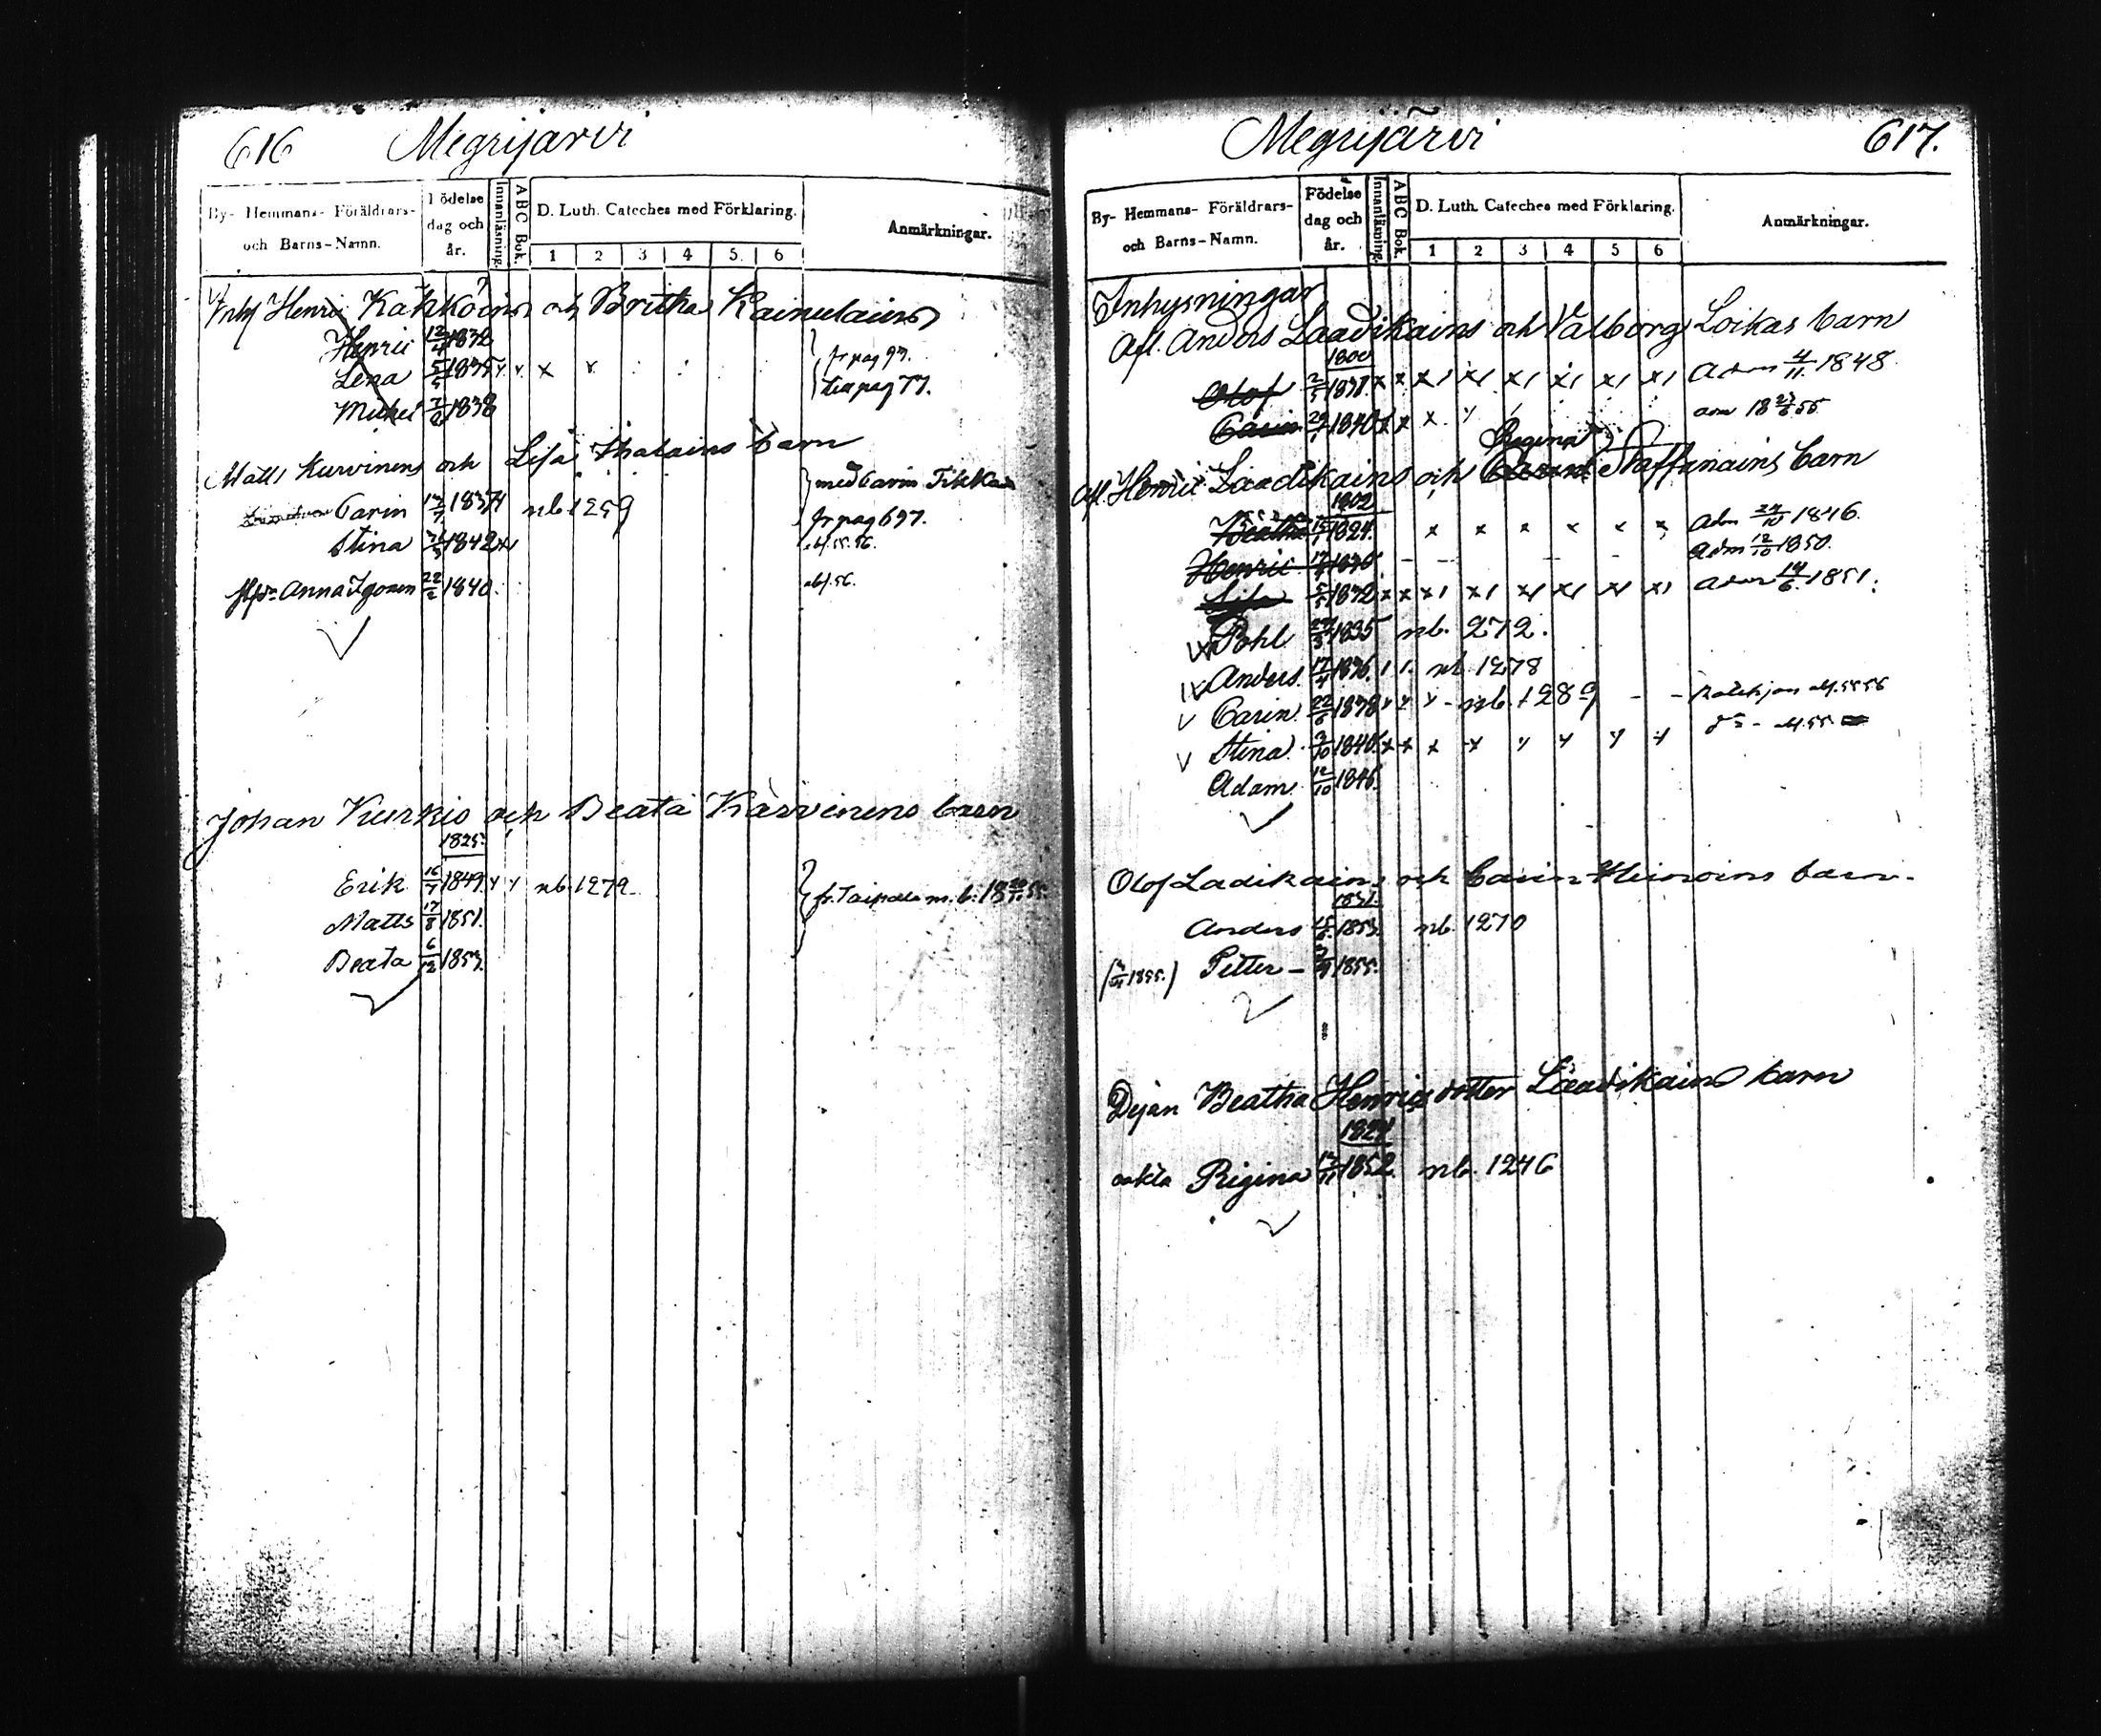 616 Megrijärvi
By- Hemmans- Föräldrars- och Barns-Namn. Födelse dag och år. Innanläsning. ABC Bok. D. Luth. Cateches med Förklaring. 1 2 3 4 5. 6 Anmärkningar.
Inhys Henric Kähköins och Britha Kainulains
Henric 12/4 1832
Lena 5/5 1835 fr pag 97.
Michel 1838 till pag 77.
Matts Kurvinens och Lisa Ihalains barn
Carin 1837 nb 1259 med Carin Tikka
fr pag 697.
Stina 1842 abs. 55. 56.
Anna Igonen 22/2 1840. abs. 56.
Johan Kurkis och Beata Karvinens barn
1825.
Erik 16/7 1849 nb. 1272 fr. Taipale
Matts 17/8 1851.
Beata 6/12 1853.
Megrijärvi 617.
By- Hemmans- Föräldrars- och Barns-Namn. Födelse dag och år. Innanläsning. ABC Bok. D. Luth. Cateches med Förklaring. 1 2 3 4 5 6 Anmärkningar.
Inhysningar
Afl. Anders Laadikains och Valborg Loikas barn
1800
Olof 1831. x x x x x x x x Adm 4/11 1848.
Carin 1840 x x x adm 18 55
Regina
Afl. Henric Laadikains och Staffanains barn
1802
Beatha 1824. x x x x x x adm 24/10 1846.
Henric 1830. adm 12/10 1850.
Lisa 5/5 1832 x x x x x x x x adm 14/6 1851.
Pohl 1835 nb. 272.
Anders 17/4 1836. nb. 1278
Carin 22/6 1838 nb. 1289
Stina 9/10 1840. x x x x
Adam 12/10 1846.
Olof Ladikains och Carin Heinoins barn
1831.
Anders 1853 nb. 1270
Petter 1855.
Pijan Beatha Henricsdotter Laadikains barn
1824
oäkta Regina 1852. nb. 1246